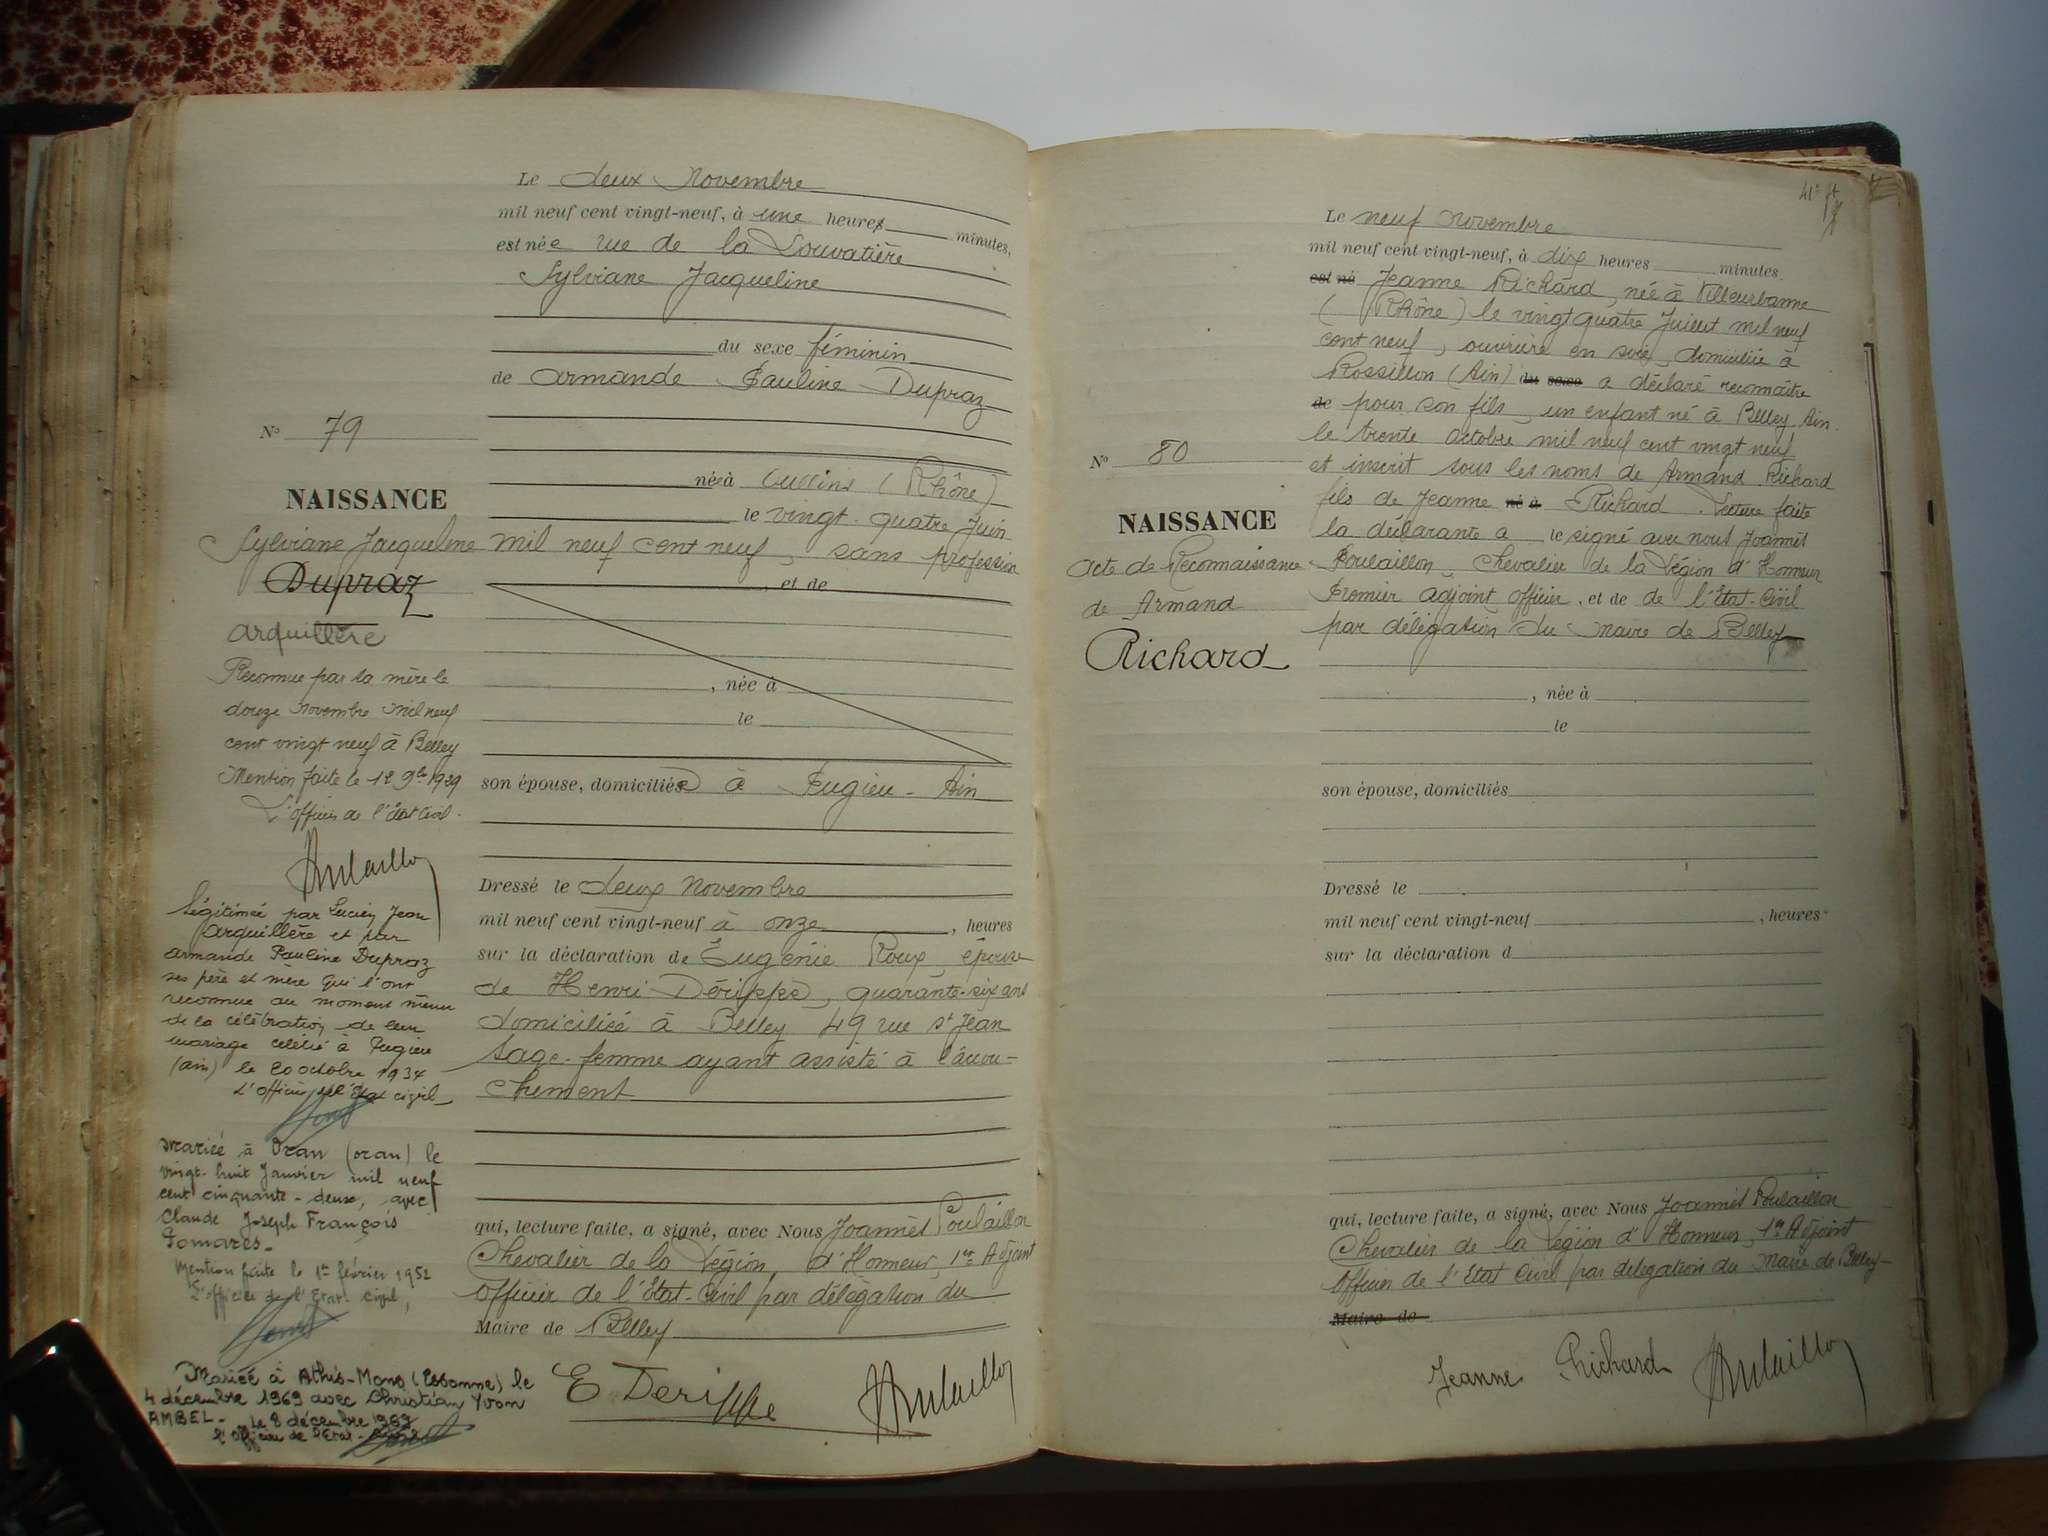 Le deux Novembre
mil neuf cent vingt-neuf, à une heures minutes,
est née rue de la Louvatière
Sylviane Jacqueline
du sexe féminin
de Armande Pauline Dupraz
née à Cullins (Rhône)
le vingt-quatre Juin
mil neuf cent neuf, sans profession
et de
, née à
le
son épouse, domiciliée à Pugieu - Ain
Dressé le deux Novembre
mil neuf cent vingt-neuf à onze , heures
sur la déclaration de Eugénie Roux, épouse
de Henri Dérippe, quarante-six ans
domiciliée à Belley 49 rue St Jean
Sage-femme ayant assisté à l'accou-
chement
qui, lecture faite, a signé, avec Nous Joannès Poulaillon
Chevalier de la Légion d'Honneur, 1er Adjoint
Officier de l'Etat-Civil par délégation du
Maire de Belley
E Derippe
No 79
NAISSANCE
Sylviane Jacqueline
Dupraz
Arquillère
Reconnue par la mère le
douze novembre mil neuf
cent vingt neuf à Belley
Mention faite le 12 9bre 1929
L'officier de l'État Civil.
Légitimée par Lucien Jean
Arquillère et par
Armande Pauline Dupraz
ses père et mère qui l'ont
reconnue au moment même
de la célébration de leur
mariage célébré à Pugieu
(Ain) le 20 octobre 1934
L'officier de l'Etat civil
Mariée à Oran (Oran) le
vingt-huit Janvier mil neuf
cent cinquante-deux, avec
Claude Joseph François
Pomarès.
Mention faite le 1er février 1952
L'officier de l'Etat civil,
Mariée à Athis-Mons (Essonne) le
4 décembre 1969 avec Christian Yvon
AMBEL - Le 8 décembre 1969
L'Officier de l'Etat-Civil
41e ft
Le neuf novembre
mil neuf cent vingt-neuf, à dix heures minutes
est né Jeanne Richard, née à Villeurbanne
(Rhône) le vingt quatre Juillet mil neuf
cent neuf, ouvrière en soie, domiciliée à
Rossillon (Ain) du sexe a déclaré reconnaître
de pour son fils, un enfant né à Belley Ain.
le trente octobre mil neuf cent vingt neuf
et inscrit sous les noms de Armand Richard
fils de Jeanne né à Richard. Lecture faite
la déclarante a le signé avec nous Joannès
Poulaillon, Chevalier de la Légion d'Honneur
Premier adjoint Officier, et de de l'Etat-Civil
par délégation du Maire de Belley
, née à
le
son épouse, domiciliés
Dressé le
mil neuf cent vingt-neuf , heures
sur la déclaration d
qui, lecture faite, a signé, avec Nous Joannès Poulaillon
Chevalier de la Légion d'Honneur, 1er Adjoint
Officier de l'Etat Civil par délégation du Maire de Belley
Maire de
Jeanne Richard
No 80
NAISSANCE
Acte de Reconnaissance
de Armand
Richard